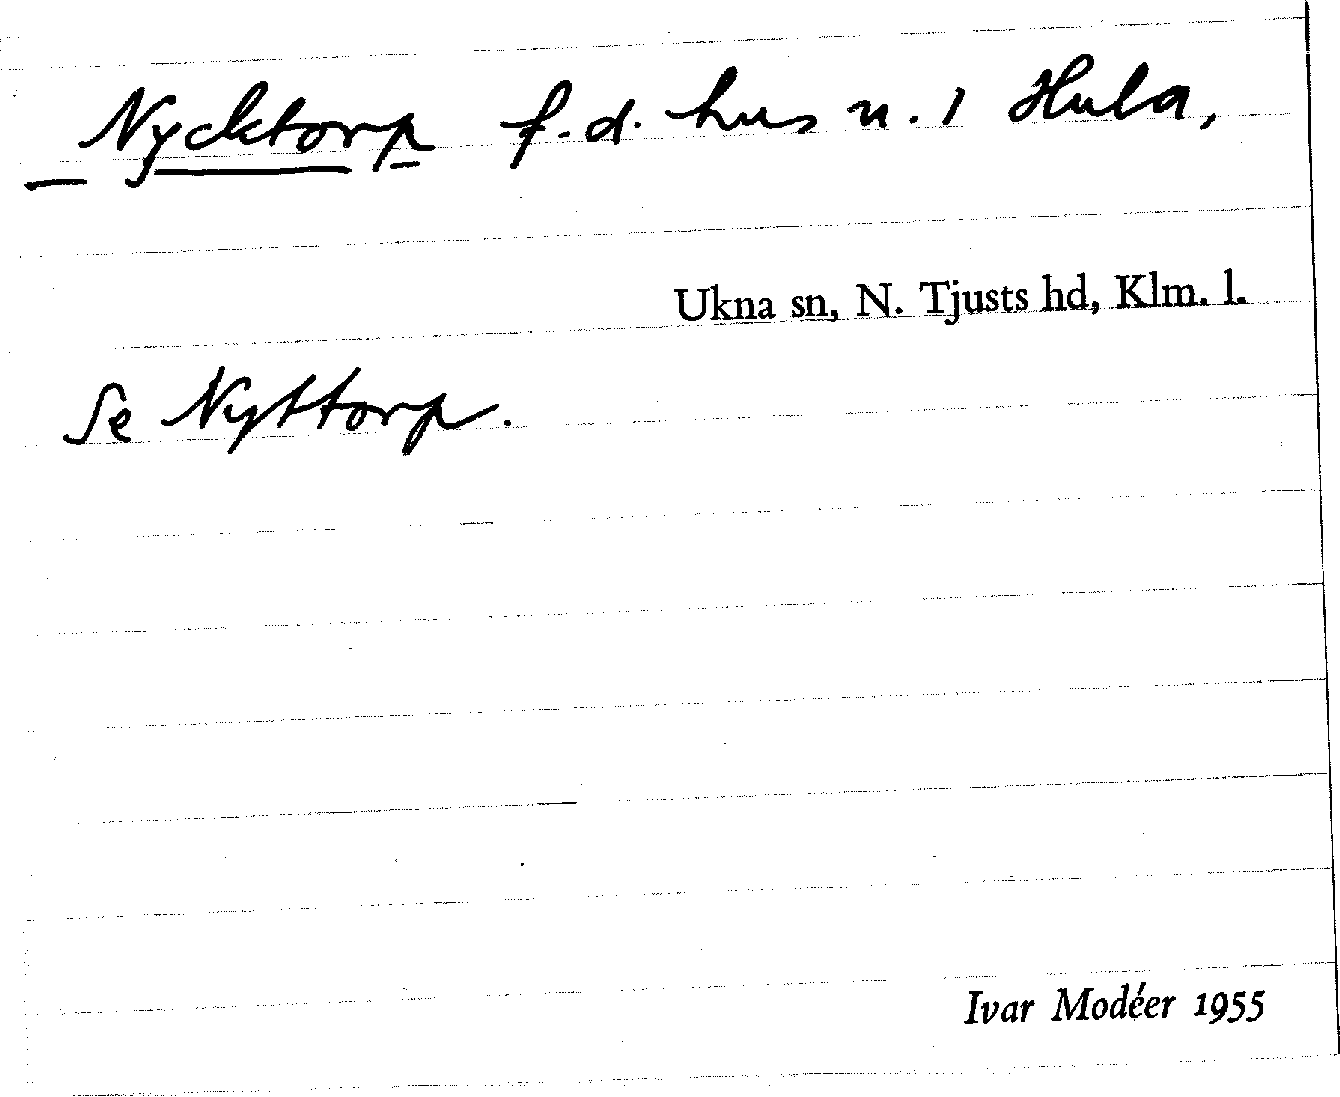 Nycktorp f.d. hus u. 1 Hula,
Ukna sn, N. Tjusts hd, Klm. l.
Se Nyttorp.
Ivar Modéer 1955